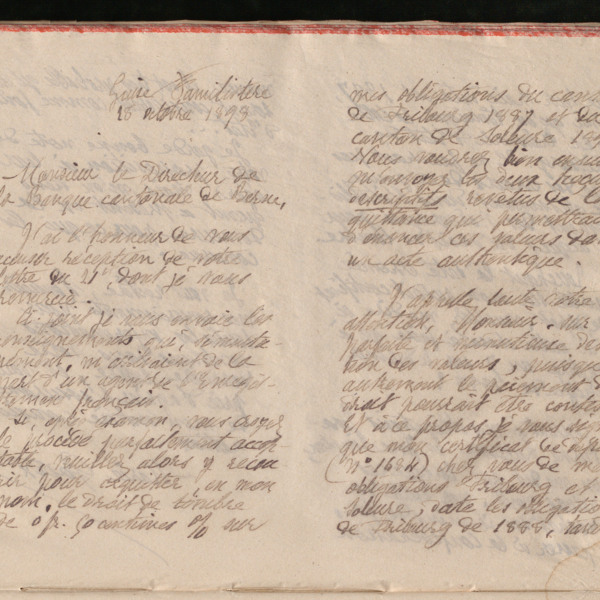 Guise Familistère
28 octobre 1893
Monsieur le Directeur de
la Banque cantonale de Berne,
J'ai l'honneur de vous
accuser réception de votre
lettre du 21, dont je vous
remercie.
Ci-joint je vous envoie les
renseignements qui,
m'ont été de la
part d'un
français.
Si, après examen, vous croyez
le procédé parfaitement accep-
table, veuillez alors y recou-
rir pour acquitter, en mon
nom, le droit de timbre
de 0 fr. 50 centimes % sur
mes obligations du can
de Fribourg 1887 et du
canton de Soleure 18
Vous voudrez bien ensu
m'envoyer les deux
descriptifs revêtus de l
quittance qui permettra
d'énoncer ces valeurs da
un acte authentique.
J'appelle toute votre
attention, Monsieur, sur
parfaite et minutieuse
tion des valeurs, puisqu
autrement le paiement d
droit pourrait être contes
Et à ce propos, je vous
que mon certificat de dépô
(N° 1684) chez vous de me
obligations Fribourg et
Soleure, date les obligation
de Fribourg de 1888, tan